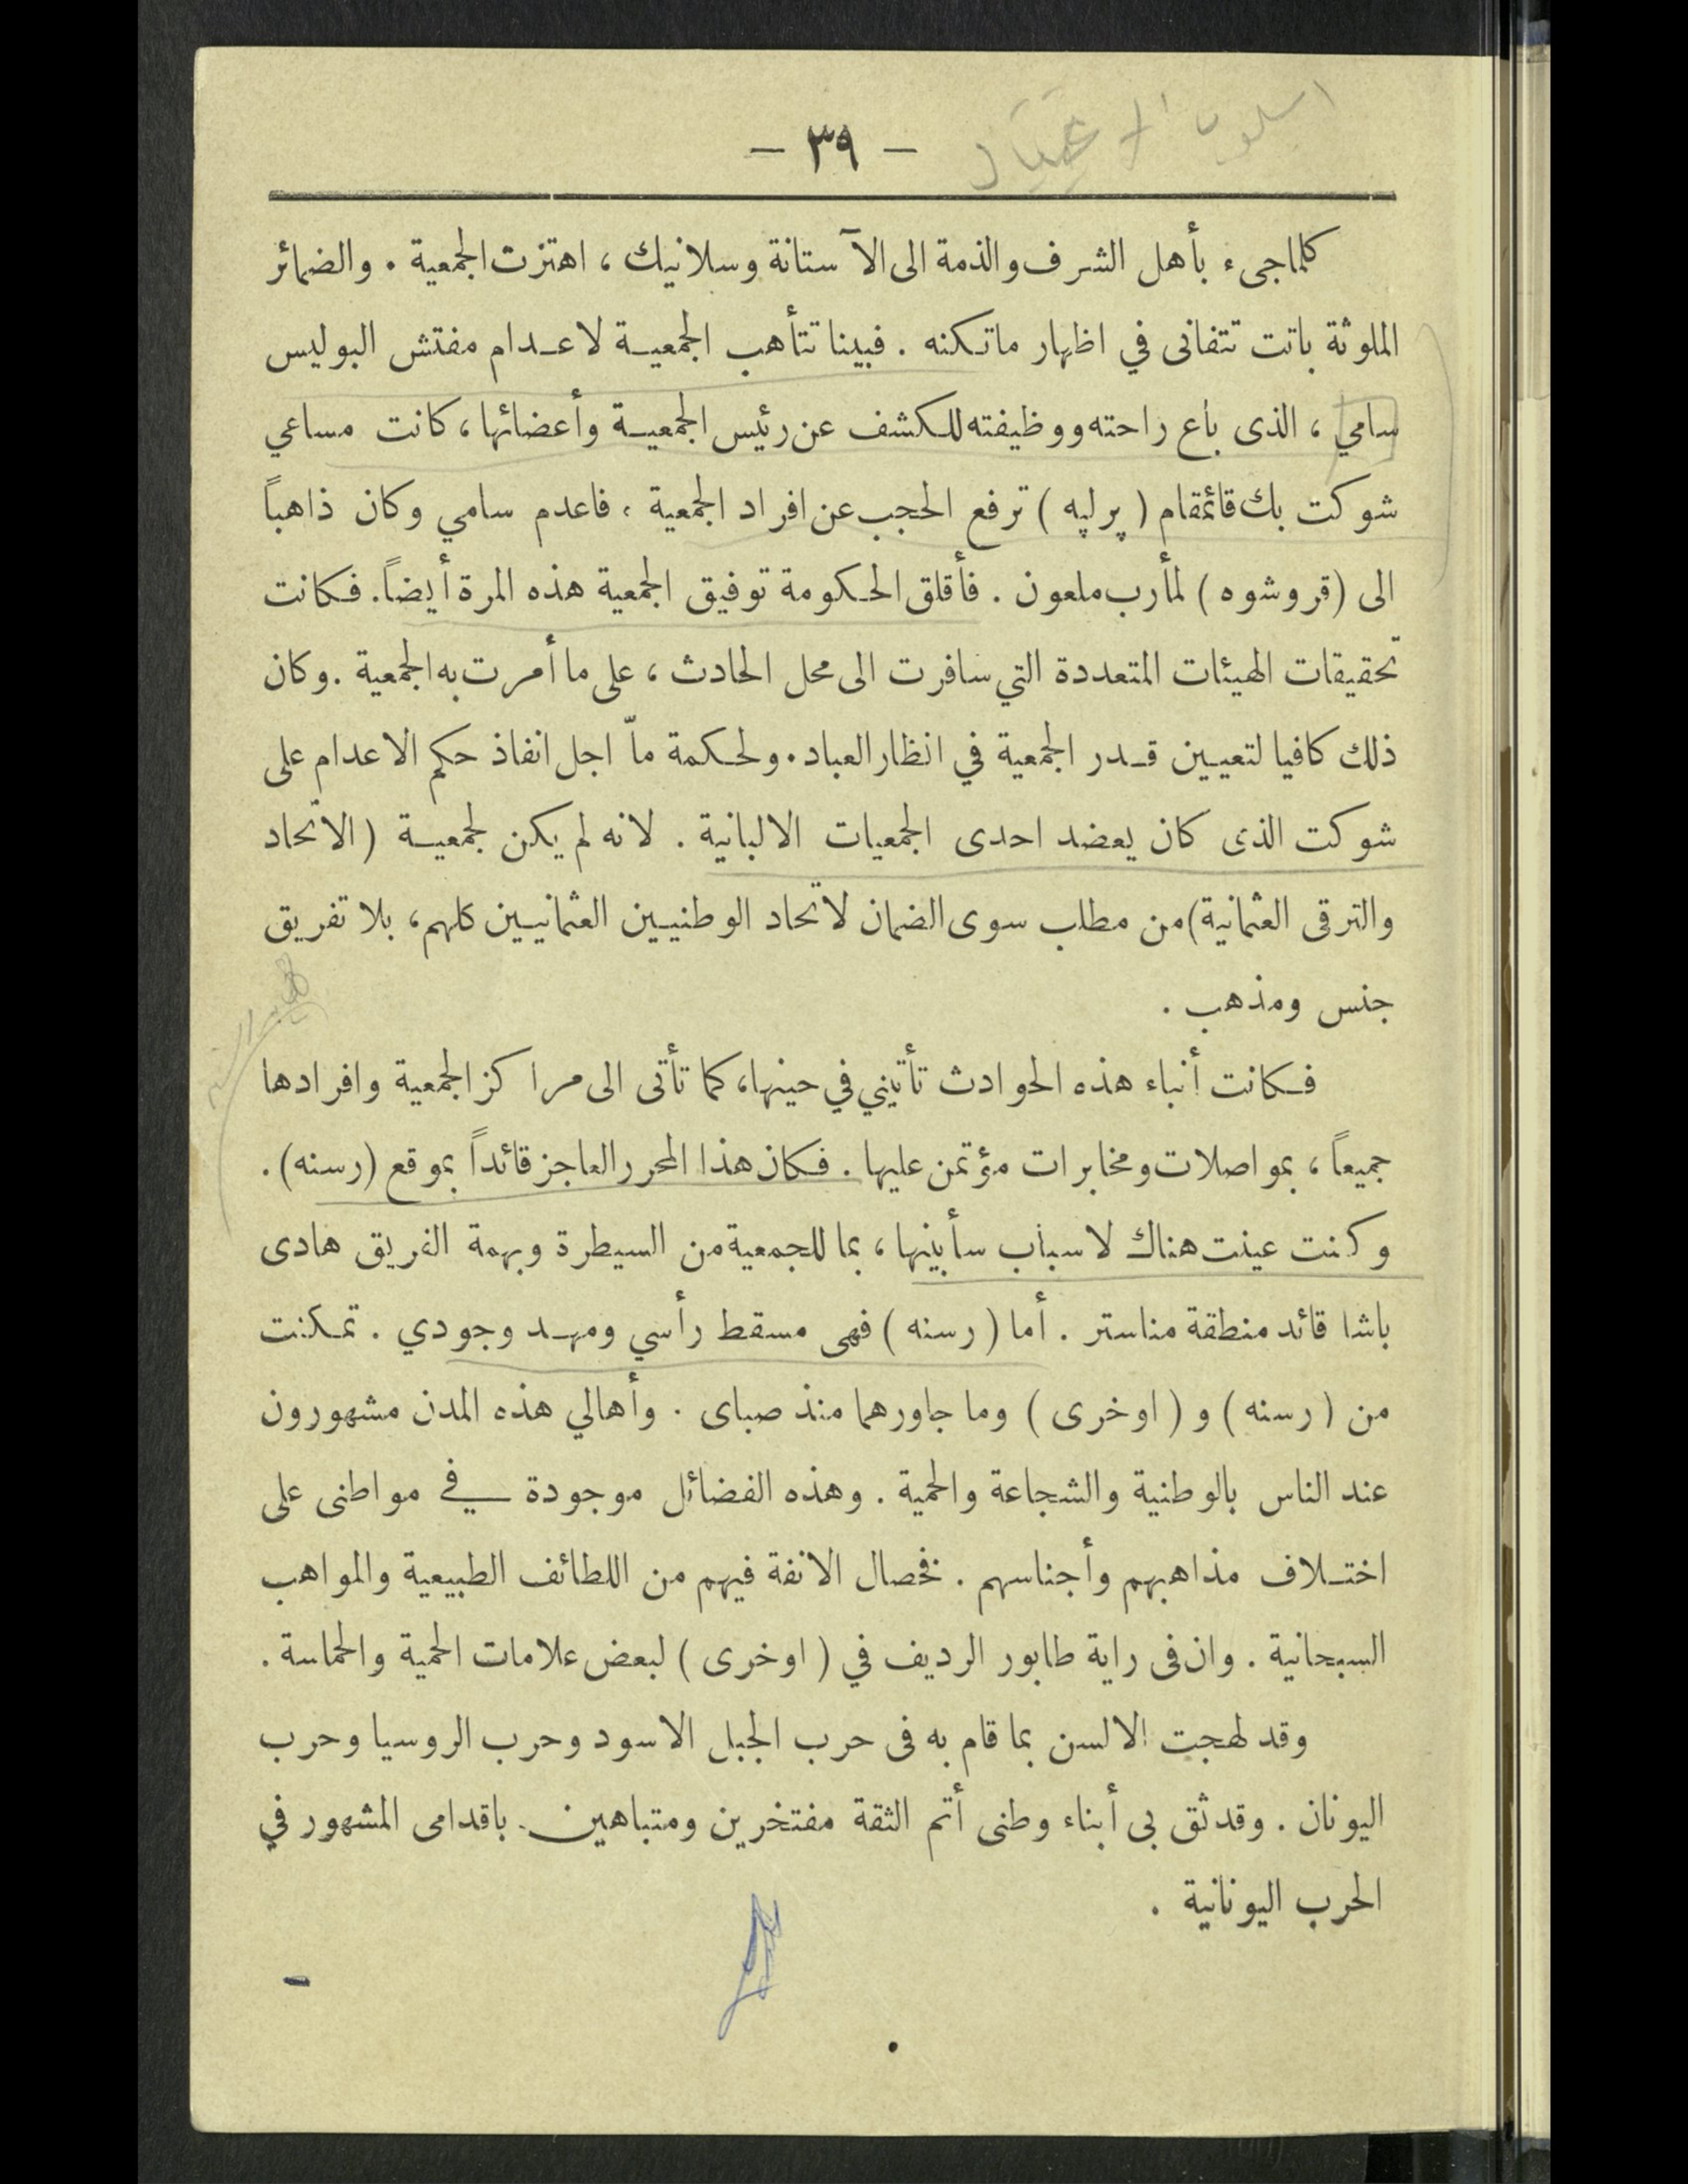 اسلوب الاغتيال
— ٣٩ —
كلما جىء بأهل الشرف والذمة الى الآستانة وسلانيك ، اهتزت الجمعية . والضمائر
الملوثة باتت تتفانى في اظهار ماتكنه . فبينا تتأهب الجمعية لاعدام مفتش البوليس
سامي ، الذى باع راحته ووظيفته للكشف عن رئيس الجمعية وأعضائها ، كانت مساعي
شوكت بك قائمقام ( پرلپه ) ترفع الحجب عن افراد الجمعية ، فاعدم سامي وكان ذاهباً
الى (قروشوه ) لمأرب ملعون . فأقلق الحكومة توفيق الجمعية هذه المرة أيضاً. فكانت
تحقيقات الهيئات المتعددة التي سافرت الى محل الحادث ، على ما أمرت به الجمعية . وكان
ذلك كافيا لتعيين قدر الجمعية في انظار العباد . ولحكمة ماّ اجل انفاذ حكم الاعدام على
شوكت الذى كان يعضد احدى الجمعيات الالبانية . لانه لم يكن لجمعية (الاتحاد
والترقى العثمانية) من مطلب سوى الضمان لاتحاد الوطنيين العثمانيين كلهم ، بلا تفريق
جنس ومذهب .
فكانت أنباء هذه الحوادث تأتيني في حينها ، كما تأتى الى مراكز الجمعية وافرادها
جميعاً ، بمواصلات ومخابرات مؤتمن عليها . فكان هذا المحرر العاجز قائداً بموقع (رسنه) .
وكنت عينت هناك لاسباب سأبينها ، بما للجمعية من السيطرة وبهمة الفريق هادى
باشا قائد منطقة مناستر . أما ( رسنه ) فهى مسقط رأسي ومهد وجودي . تمكنت
من ( رسنه ) و ( اوخرى ) وما جاورهما منذ صباى . وأهالي هذه المدن مشهورون
عند الناس بالوطنية والشجاعة والحمية . وهذه الفضائل موجودة في مواطنى على
اختلاف مذاهبهم وأجناسهم . فخصال الانفة فيهم من اللطائف الطبيعية والمواهب
السبحانية . وان فى راية طابور الرديف في ( اوخرى ) لبعض علامات الحمية والحماسة .
وقد لهجت الالسن بما قام به فى حرب الجبل الاسود وحرب الروسيا وحرب
اليونان . وقد ثق بى أبناء وطنى أتم الثقة مفتخرين ومتباهين باقدامى المشهور في
الحرب اليونانية .